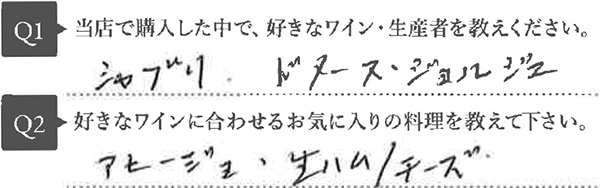 Q1 当店で購入した中で、好きなワイン・生産者を教えください。
シャブリ ドメーヌ・ジョルジュ
Q2 好きなワインに合わせるお気に入りの料理を教えて下さい。
アヒージョ・生ハム/チーズ